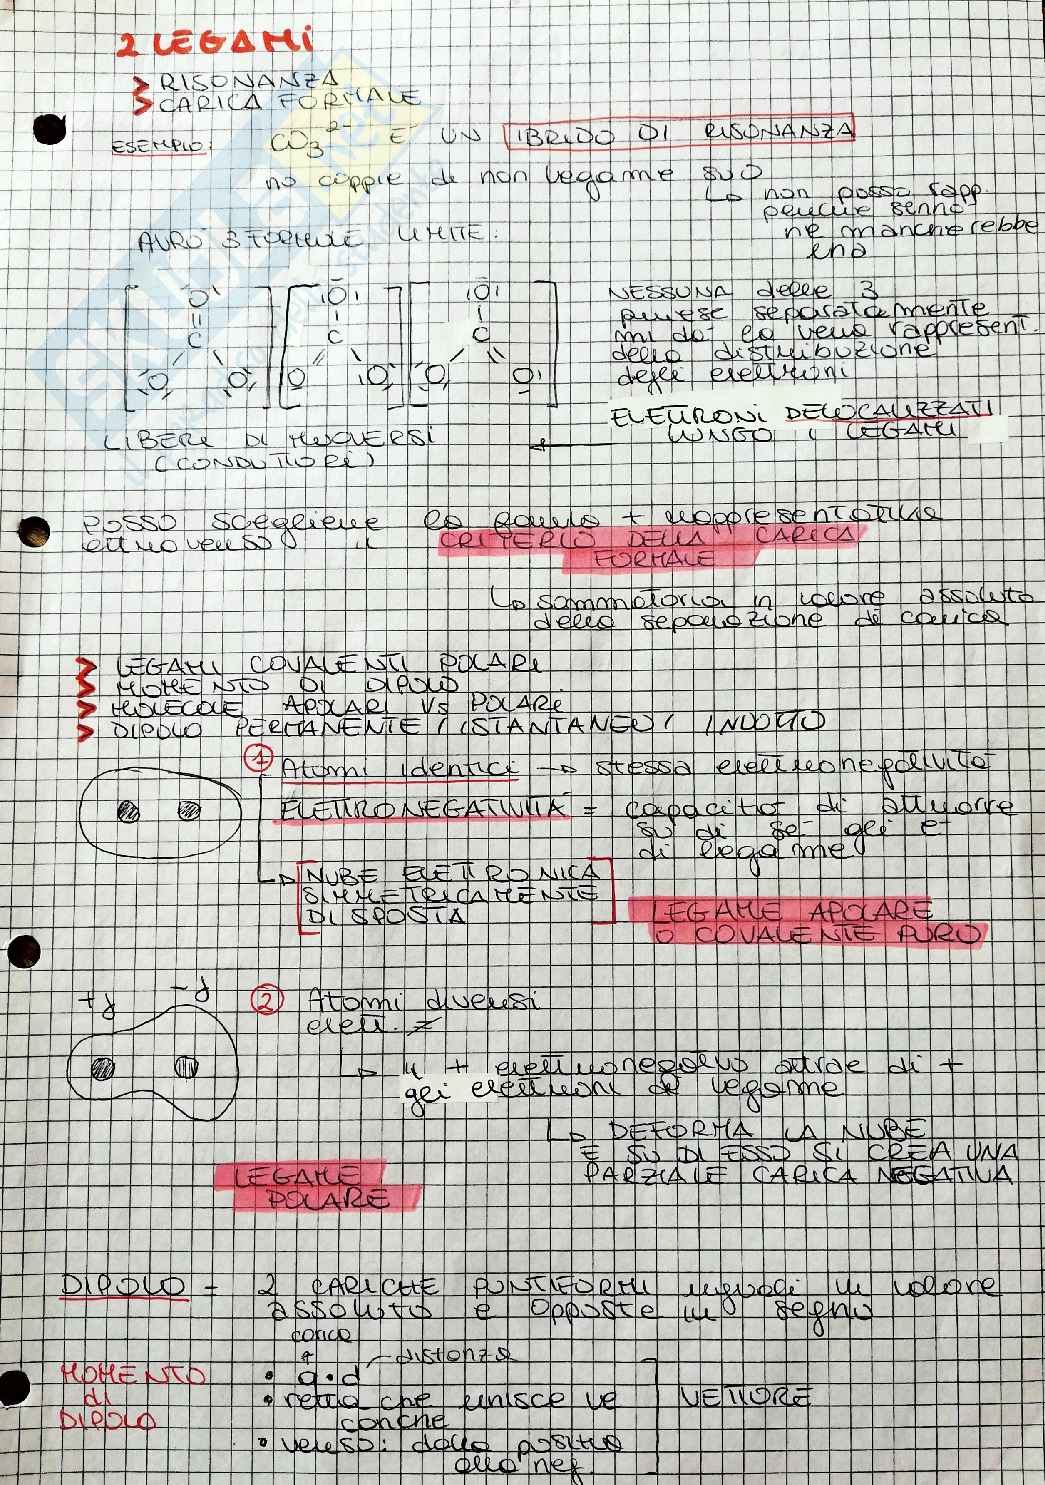 2 LEGAMI
> RISONANZA
> CARICA FORMALE
ESEMPIO: CO3 2- È UN IBRIDO DI RISONANZA
no coppie di non legame su O
↳ non posso rapp.
perché sennò
ne mancherebbe
una
AVRÒ 3 FORMULE LIMITE:
O O O
C C C
O O O O O O
NESSUNA delle 3
prese separatamente
mi dà la vera rappresent.
della distribuzione
degli elettroni
ELETTRONI DELOCALIZZATI
LUNGO i LEGAMI
LIBERI DI MUOVERSI
(CONDUTTORI)
posso scegliere la formula + rappresentativa
attraverso il CRITERIO DELLA CARICA
FORMALE
↳ sommatoria in valore assoluto
della separazione di carica
> LEGAMI COVALENTI POLARI
> MOMENTO DI DIPOLO
> MOLECOLE APOLARI VS POLARI
> DIPOLO PERMANENTE / ISTANTANEO / INDOTTO
① Atomi identici → stessa elettronegatività
ELETTRONEGATIVITÀ = capacità di attrarre
su di sé gli e-
di legame
↳ NUBE ELETTRONICA
SIMMETRICAMENTE
DISPOSTA
LEGAME APOLARE
O COVALENTE PURO
+δ -δ
② Atomi diversi
elett. ≠
↳ il + elettronegativo attrae di +
gli elettroni di legame
↳ DEFORMA LA NUBE
E SU DI ESSO SI CREA UNA
PARZIALE CARICA NEGATIVA
LEGAME
POLARE
DIPOLO = 2 CARICHE PUNTIFORMI uguali in valore
assoluto e opposte in segno
carica
↑ distanza
MOMENTO
di
DIPOLO
• q•d
• retta che unisce le
cariche
• verso: dalla positiva
alla neg.
VETTORE